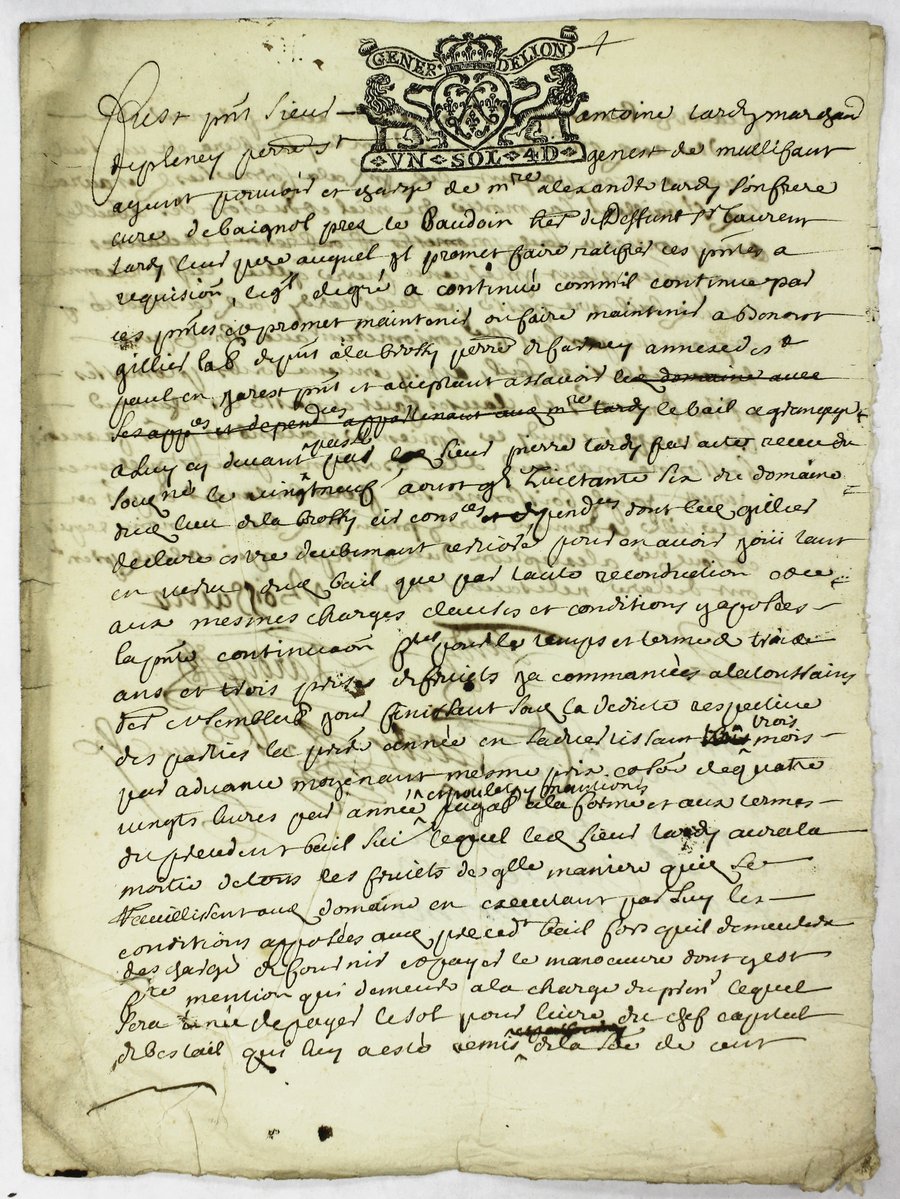 GENER· DELION
VN·SOL·4D·
Fust pnt sieur Antoine tardy marchand
de pleney perre st genest de mallifaut
ayant pouvoir et charge de mre alexandre tardy son frere
curé de baignol pres le Baudoin her de deffunt sr Laurent
tardy leur pere auquel promet faire ratifier ces pntes a
requision, de gré a continué comme il continue par
ces pntes et promet maintenir ou faire maintenir a
gillier lab de pnt a la brossy perre de farney annexe de st
paul en jarest pnt et acceptant assavoir les domaine avec
ses appces et dependces appartenant aux mre tardy le bail a grangage
a luy cy devant passé par le sieur pierre tardy par acte receu du
soubné le vingtneuf aoust gbc huictante six du domaine
dud lieu de la brossy ses consces et dependces dont led gillier
declare estre deubement pour en avoir joüi tant
en vertu dud bail que par tacite reconduction et ce
aux mesmes charges clauses et conditions y aposées
la pnte continuaon pour le temps et terme de trois
ans et trois prises de fruicts ja commancées a la toussaints
dernr ensemble pour finissant sous la dedicte respective
des parties la pre année en s'advertissant trois mois
par advance moyenant mesme prix et somme de quatre
vingts livres par année et poulets mentionés payab a la forme et aux termes
du precedent bail suivt lequel led sieur tardy aura la
moitié de tous les fruicts de qlle maniere qu'ils se
ceuillissent aud domaine en executant par luy les
conditions apposées aud precedt bail fors qu'il demeurera
deschargé de fournir et payer le manoeuvre dont y est
fte mention qui demeure a la charge du prenr lequel
sera tenu de payer le sol pour livre du chef capital
de bestail qui luy a esté remis de la soe de cent